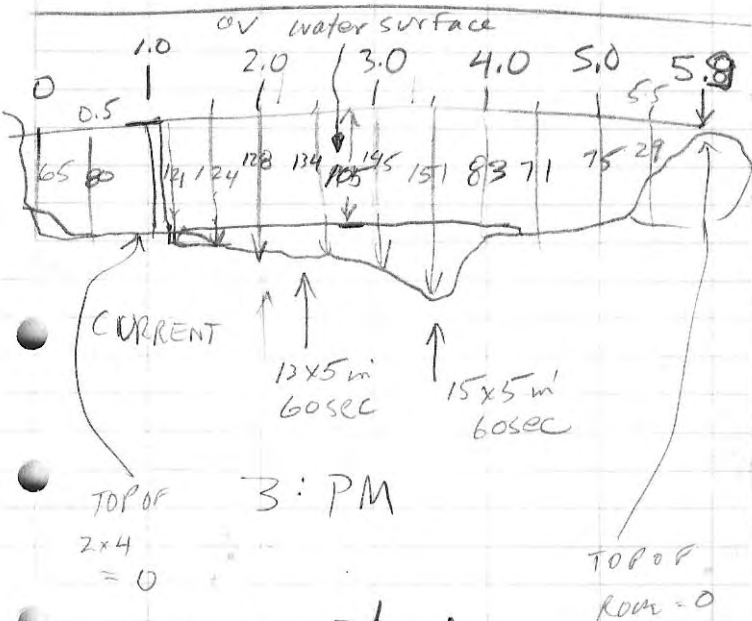 water surface
0 1.0 2.0 3.0 4.0 5.0 5.8
0.5 5.5
65 80 121 124 128 134 105 145 151 83 71 75 29
CURRENT
13x5 m
60sec
15x5 m
60sec
TOP OF
2x4
= 0
3: PM
TOP OF
= 0